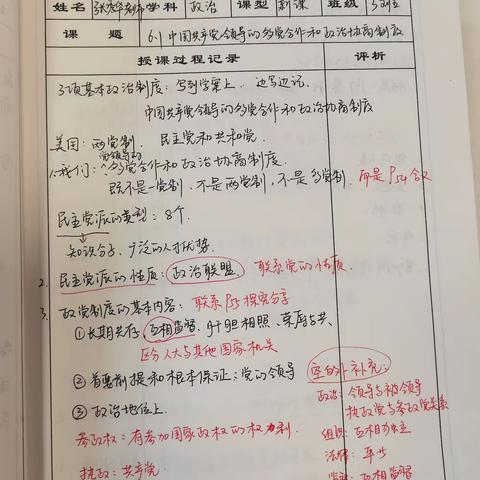 姓名 老师 学科 政治 课型 新课 班级
课题 6.1 中国共产党领导的多党合作和政治协商制度
授课过程记录 评析
3项基本政治制度：写到学案上，边写边记.
中国共产党领导的多党合作和政治协商制度
美国：两党制. 民主党和共和党.
党领导的
1.我们：多党合作和政治协商制度.
既不是一党制，不是两党制，不是多党制. 而是P54含义
民主党派的类型：8个.
知识分子、广泛的人才优势.
2. 民主党派的性质：政治联盟. 联系党的性质.
3. 政党制度的基本内容：联系P55探究分享
①长期共存、互相监督、肝胆相照、荣辱与共.
区分人大与其他国家机关
②首要前提和根本保证：党的领导
③政治地位上.
参政权：有参加国家政权的权力利.
执政：共产党.
室外补充：
政治：领导与被领导
执政党与参政党关系
组织：互相独立
法律：平等
监督：互相监督